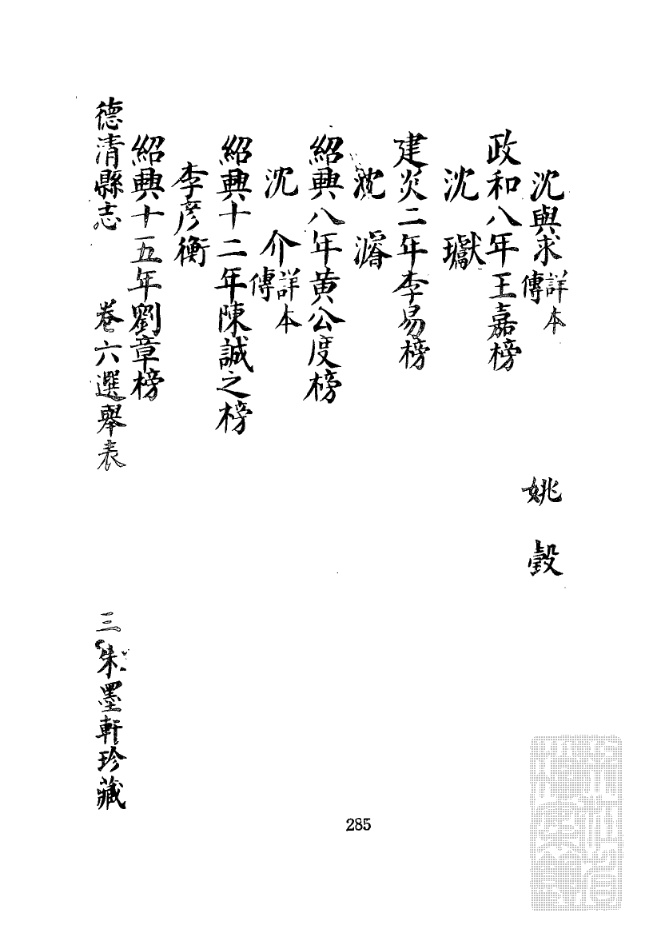 沈與求 詳本傳 姚 瑴
政和八年王嘉榜
沈 瓛
建炎二年李易榜
沈 濬
紹興八年黃公度榜
沈 介 詳本傳
紹興十二年陳誠之榜
李彥衡
紹興十五年劉章榜
德清縣志 卷六選舉表 三 朱墨軒珍藏
285